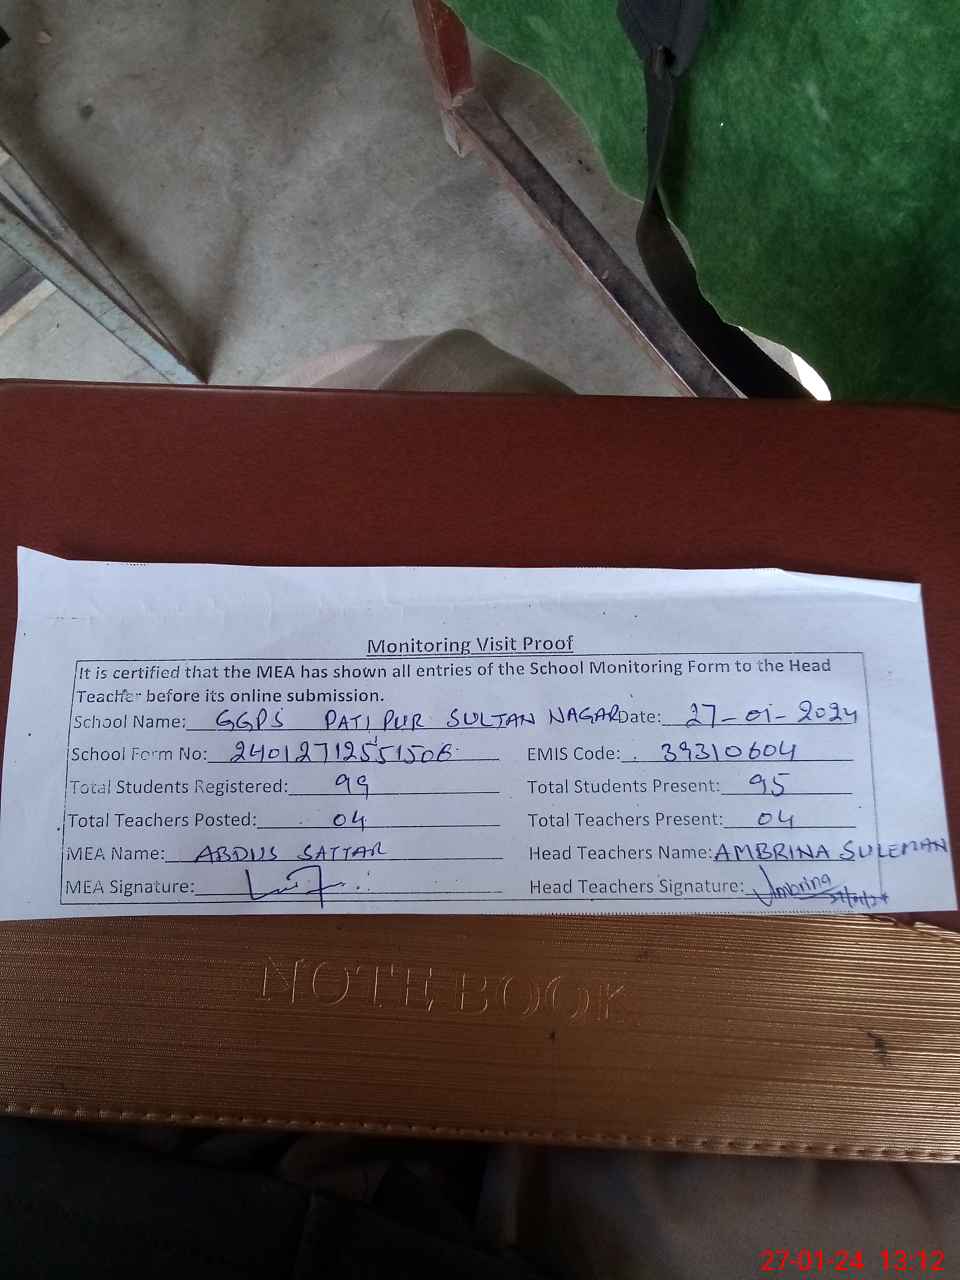 Monitoring Visit Proof
It is certified that the MEA has shown all entries of the School Monitoring Form to the Head
Teacher before its online submission.
School Name: GGPS PATI PUR SULTAN NAGAR Date: 27-01-2024
School Form No: 24012712551506 EMIS Code: 39310604
Total Students Registered: 99 Total Students Present: 95
Total Teachers Posted: 04 Total Teachers Present: 04
MEA Name: ABDUS SATTAR Head Teachers Name: AMBRINA SULEMAN
MEA Signature: Head Teachers Signature: Ambrina
27/01/24
NOTEBOOK
27-01-24 13:12